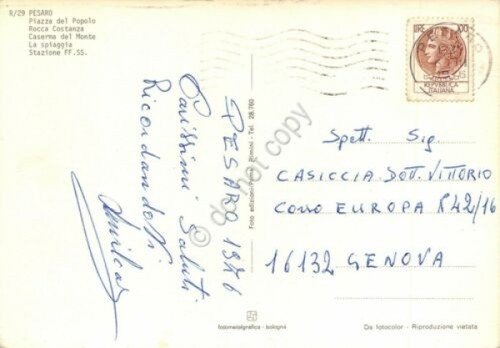 R/29 PESARO
Piazza del Popolo
Rocca Costanza
Caserma del Monte
La spiaggia
Stazione FF.SS.
LIRE 100
REPVBBLICA
ITALIANA
PESARO 1976
Carissimi Saluti
RicordandoVi
Foto edizioni Rimini - Tel. 28.760
Spett. Sig.
CASICCIA DOTT. VITTORIO
Corso EUROPA 842/16
16132 GENOVA
fotometalgrafica - bologna
Da fotocolor - Riproduzione vietata
do not copy